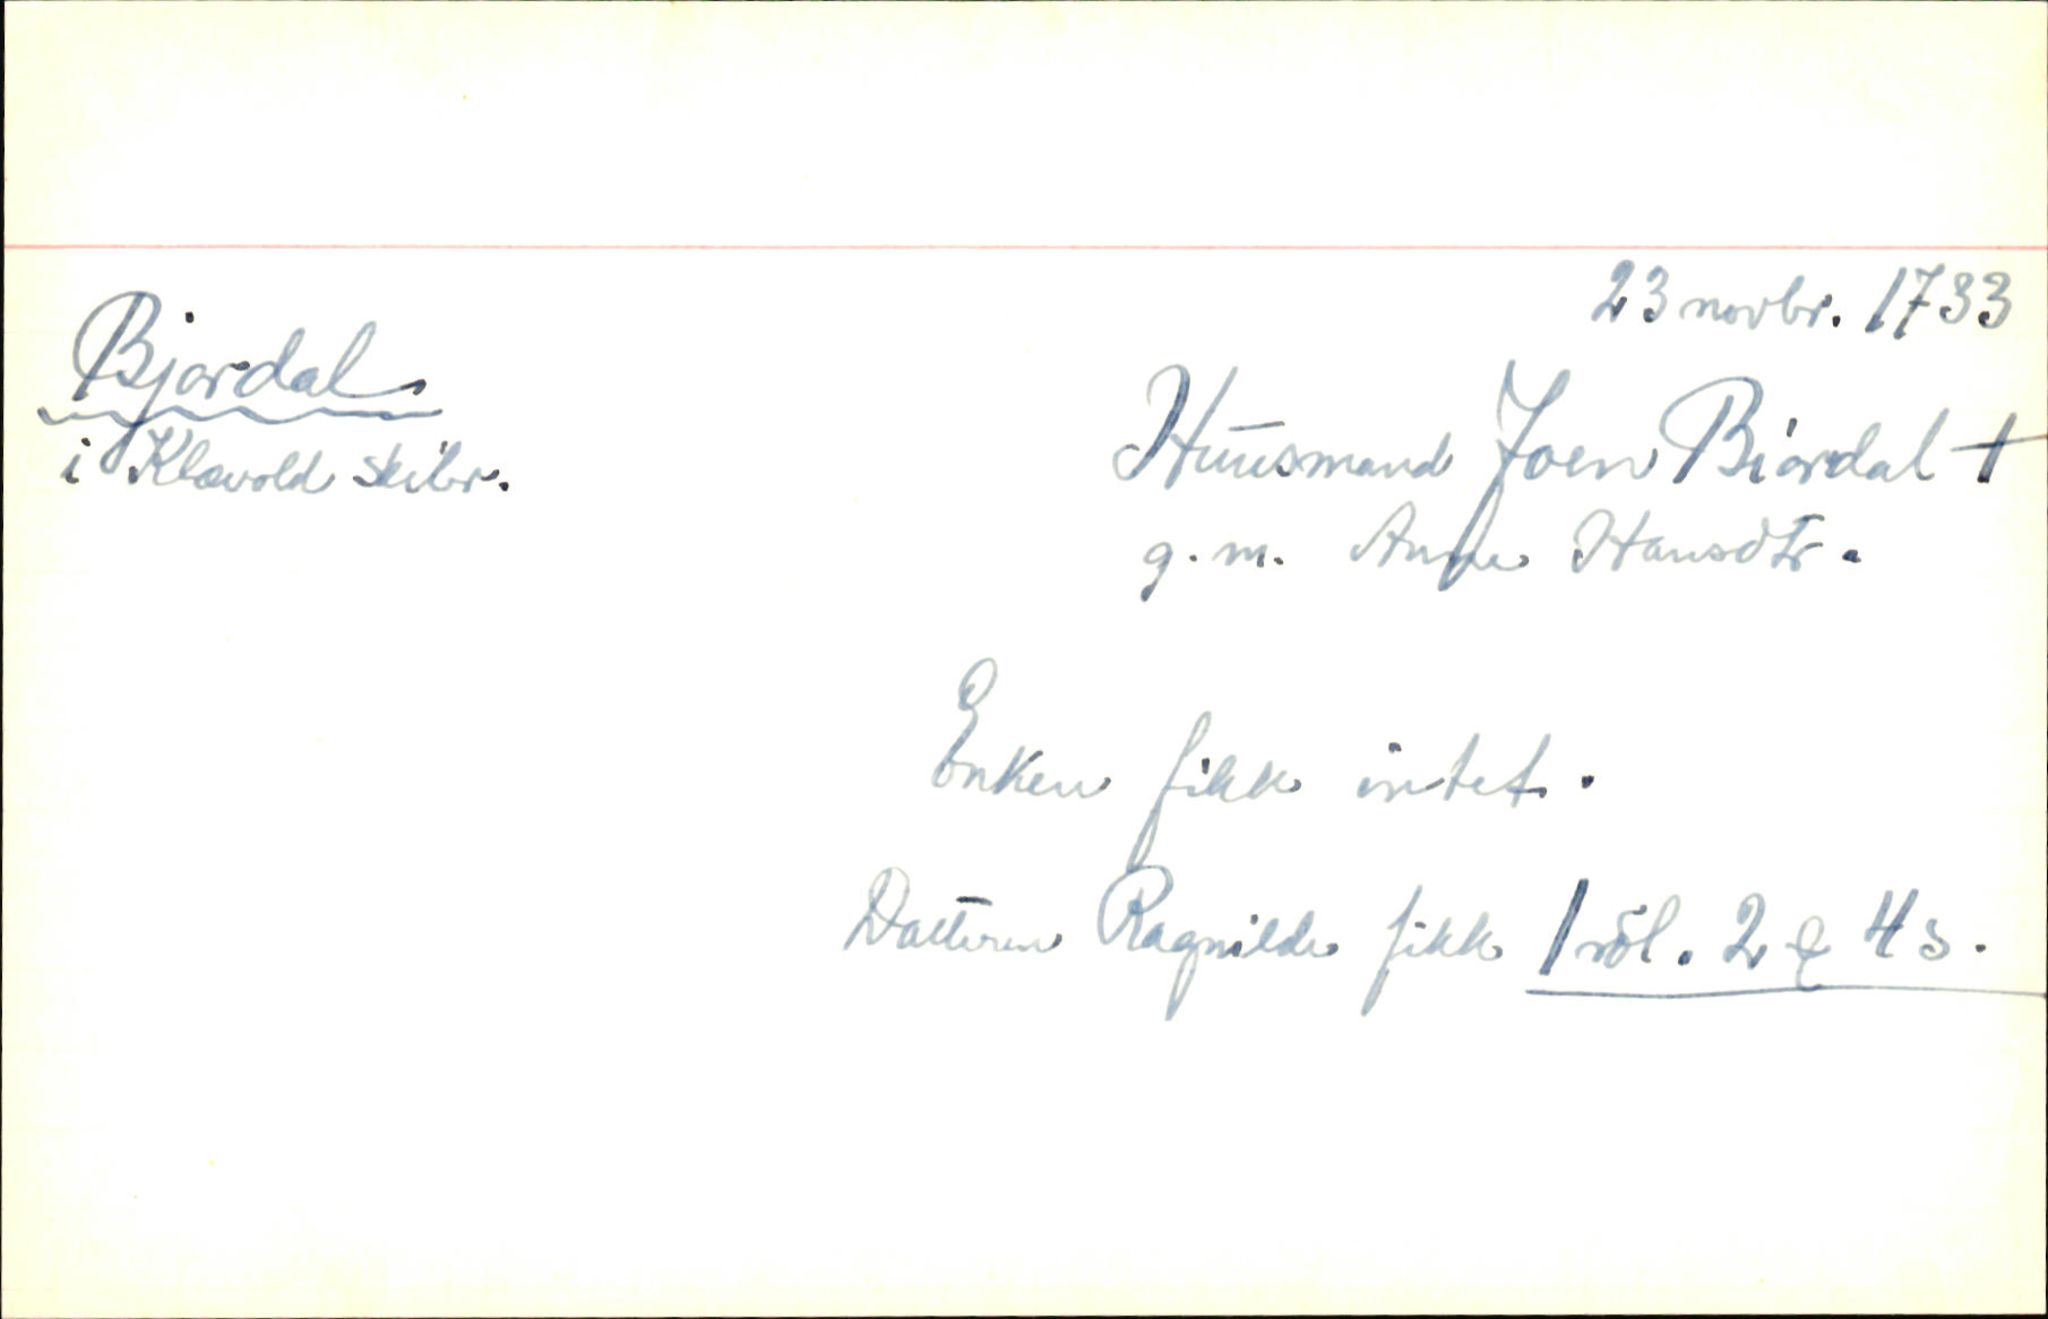 23 novbr. 1733
Bjordal
i Klævold skibr.
Huusmand Joen Biordal †
g. m. Anne Hansdtr.
Enken fikk intet.
Datteren Ragnilde fikk 1 rdl. 2 ℔ 4 s.